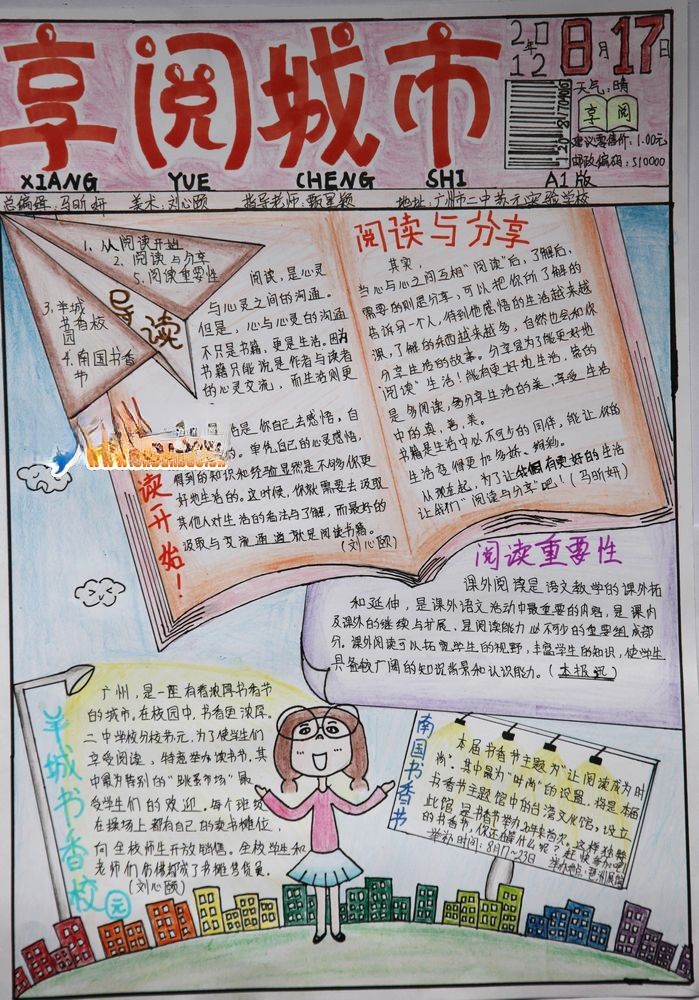 享阅城市
XIANG YUE CHENG SHI
2012年8月17日
天气：晴
享阅
建议零售价：1.00元
邮政编码：510000
A1版
总编辑：马昕妍 美术：刘心颐 指导老师：甄军颖 地址：广州市二中苏元实验学校
导读
1、从阅读开始
2、阅读与分享
5、阅读重要性
3、羊城书香校园
4、南国书香书
读开始！
阅读，是心灵
与心灵之间的沟通。
但是，心与心灵的沟通
不只是书籍，更是生活。因为
书籍只能说是作者与读者
的心灵交流，而生活则更
是你自己去感悟，自
单凭自己的心灵感悟，
得到的知识和经验显然是不够你更
好地生活的。这时候，你就需要去汲取
其他人对生活的看法与了解，而最好的
汲取与交流通道就是阅读书籍。
（刘心颐）
阅读与分享
其实，
当心与心之间互相“阅读”后，了解后，
需要的则是分享，可以把你所了解的
告诉另一个人，得到他感悟的生活越来越
深，了解的东西越来越多，自然也会和你
分享生活的故事。分享是为了能更好地
“阅读”生活！能有更好地生活，需的
是多阅读，多分享生活的美，享受生活
中的真，善，美。
书籍是生活中必不可少的同伴，能让你的
生活变得更加多娇、绚丽。
从现在起，为了让我们有更好的生活
让我们“阅读与分享”吧！（马昕妍）
阅读重要性
课外阅读是语文教学的课外拓
和延伸，是课外语文活动中最重要的内容，是课内
及课外的继续与扩展，是阅读能力必不可少的重要组成部
分。课外阅读可以拓宽学生的视野，丰富学生的知识，使学生
具备较广阔的知识背景和认识能力。（本报讯）
羊城书香校园
广州，是一座有着浓厚书香节
的城市。在校园中，书香更浓厚。
二中学校分枝苏元，为了使学生们
享受阅读、特意举办读书节。其
中最为特别的“跳蚤市场”最
受学生们的欢迎。每个班级
在操场上都有自己的卖书摊位，
向全校师生开放销售。全校学生和
老师们
（刘心颐）
南国书香节
本届书香节主题为“让阅读成为时
尚”。其中最为“时尚”的设置，将是本届
书香节主题馆中的台湾文化馆，设立
此馆是书香节举办
的书香节，你还在等什么呢？赶快参加吧
举办时间：8月17~23日